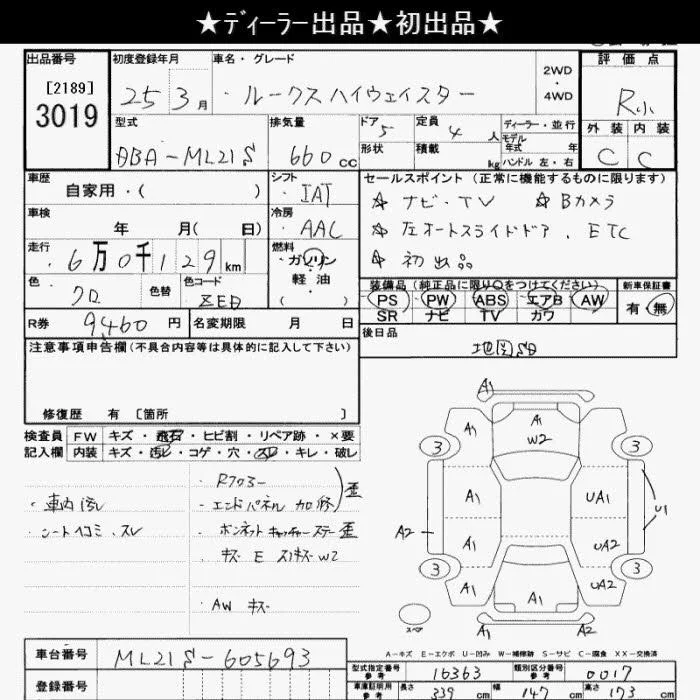 ★ディーラー出品★初出品★
出品番号 初度登録年月 車名・グレード 評価点
[2189]
3019
25 3月 ルークスハイウェイスター
2WD
・
4WD
R小
型式 排気量 ドア 定員 ディーラー・並行 外装 内装
DBA-ML21S 660cc 5 4人
モデル年式 年
形状 積載 kg ハンドル 左・右
C C
車歴 シフト セールスポイント (正常に機能するものに限ります)
自家用・( ) IAT ☆ナビ・TV ☆Bカメラ
車検 冷房
年 月( 日) AAC ☆左オートスライドドア、ETC
走行 燃料
6万0千129km ガソリン ☆初出品
軽油
( )
色 色替 色コード 装備品(純正品に限り○をつけてください) 新車保証書
クロ PS PW ABS エアB AW 有・無
SR ナビ TV カワ
R券 9460円 名変期限 月 日 後日品
地図SD
注意事項申告欄(不具合内容等は具体的に記入して下さい)
修復歴 有 [箇所 ]
検査員 FW キズ・飛石・ヒビ割・リペア跡・×要
記入欄 内装 キズ・汚レ・コゲ・穴・スレ・キレ・破レ
・車内汚レ
・シートヘコミ、スレ
・Rフロアー
・エンドパネル 加修 歪
・ボンネットキャッチャーステー歪
キズ E スリキズ W2
・AW キズ
A1
A1 A1 W2 A1
3 3
A1 UA1 U1
A2 A1 UA2
3 3
A1 A1 UA2
スペア A1 A2
A-キズ E-エクボ U-凹み W-補修跡 S-サビ C-腐食 XX-交換済
車台番号 ML21S-605693
型式指定番号 参考 16363 類別区分番号 参考 0017
登録番号
車庫証明用 参考 長さ 339cm 幅 147cm 高さ 173cm